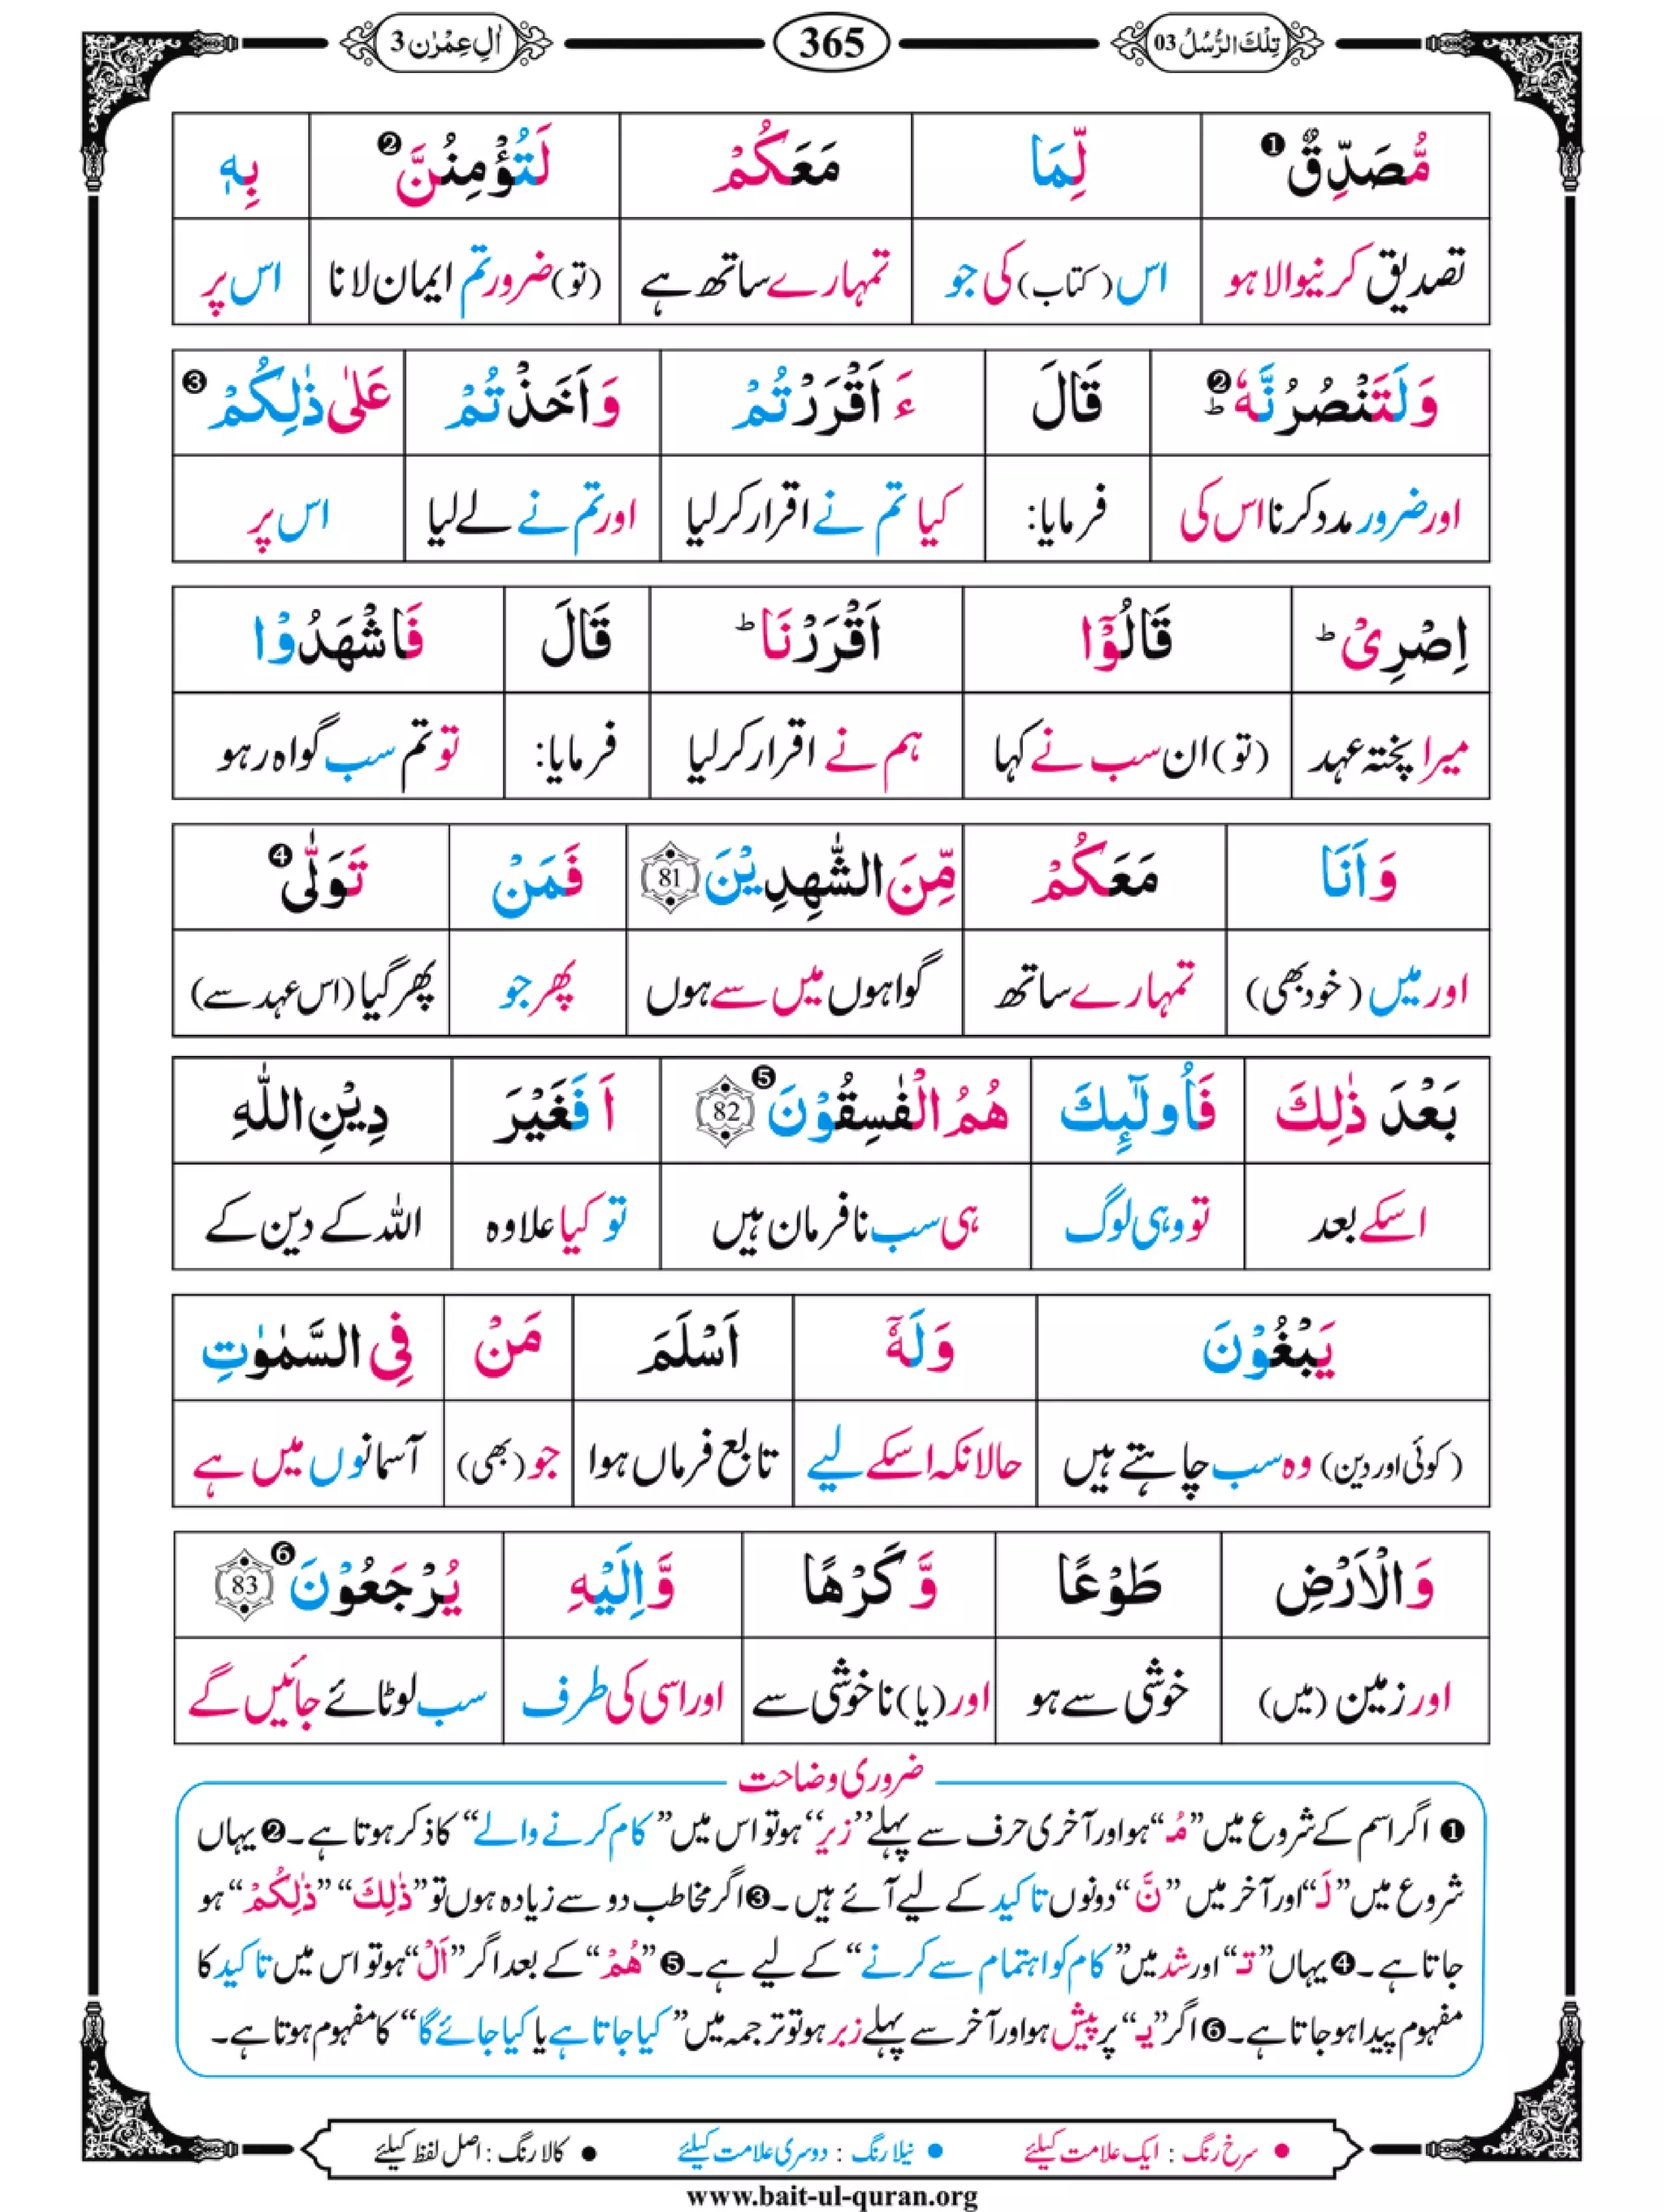 تِلْكَ الرُّسُلُ 03 365 اٰلِ عِمْرٰن 3
مُّصَدِّقٌ ❶ لِّمَا مَعَكُمْ لَتُؤْمِنُنَّ ❷ بِهٖ
تصدیق کرنیوالا ہو اس (کتاب) کی جو تمہارے ساتھ ہے (تو) ضرور تم ایمان لانا اس پر
وَلَتَنْصُرُنَّهٗ ❷ ؕ قَالَ ءَاَقْرَرْتُمْ وَاَخَذْتُمْ عَلٰى ذٰلِكُمْ ❸
اور ضرور مدد کرنا اس کی فرمایا: کیا تم نے اقرار کر لیا اور تم نے لے لیا اس پر
اِصْرِیْ ؕ قَالُوْۤا اَقْرَرْنَا ؕ قَالَ فَاشْهَدُوْا
میرا پختہ عہد (تو) ان سب نے کہا ہم نے اقرار کر لیا فرمایا: تو تم سب گواہ رہو
وَاَنَا مَعَكُمْ مِّنَ الشّٰهِدِيْنَ 81 فَمَنْ تَوَلّٰى ❹
اور میں (خود بھی) تمہارے ساتھ گواہوں میں سے ہوں پھر جو پھر گیا (اس عہد سے)
بَعْدَ ذٰلِكَ فَاُولٰٓئِكَ هُمُ الْفٰسِقُوْنَ ❺ 82 اَفَغَيْرَ دِيْنِ اللّٰهِ
اسکے بعد تو وہی لوگ ہی سب نافرمان ہیں تو کیا علاوہ اللہ کے دین کے
يَبْغُوْنَ وَلَهٗۤ اَسْلَمَ مَنْ فِی السَّمٰوٰتِ
(کوئی اور دین) وہ سب چاہتے ہیں حالانکہ اسکے لیے تابع فرماں ہوا جو (بھی) آسمانوں میں ہے
وَالْاَرْضِ طَوْعًا وَّكَرْهًا وَّاِلَيْهِ يُرْجَعُوْنَ ❻ 83
اور زمین (میں) خوشی سے ہو اور (یا) ناخوشی سے اور اسی کی طرف سب لوٹائے جائیں گے
ضروری وضاحت
❶ اگر اسم کے شروع میں ”مُـ“ ہو اور آخری حرف سے پہلے ”زیر“ ہو تو اس میں ”کام کرنے والے“ کا ذکر ہوتا ہے۔ ❷ یہاں
شروع میں ”لَـ“ اور آخر میں ”نَّ“ دونوں تاکید کے لیے آئے ہیں۔ ❸ اگر مخاطب دو سے زیادہ ہوں تو ”ذٰلِكَ“ ”ذٰلِكُمْ“ ہو
جاتا ہے۔ ❹ یہاں ”تـ“ اور شد میں ”کام کو اہتمام سے کرنے“ کے لیے ہے۔ ❺ ”هُمْ“ کے بعد اگر ”اَلْ“ ہو تو اس میں تاکید کا
مفہوم پیدا ہو جاتا ہے۔ ❻ اگر ”یـ“ پر پیش ہو اور آخر سے پہلے زبر ہو تو ترجمہ میں ”کیا جاتا ہے یا کیا جائے گا“ کا مفہوم ہوتا ہے۔
● سرخ رنگ : ایک علامت کیلئے ● نیلا رنگ : دوسری علامت کیلئے ● کالا رنگ : اصل لفظ کیلئے
www.bait-ul-quran.org